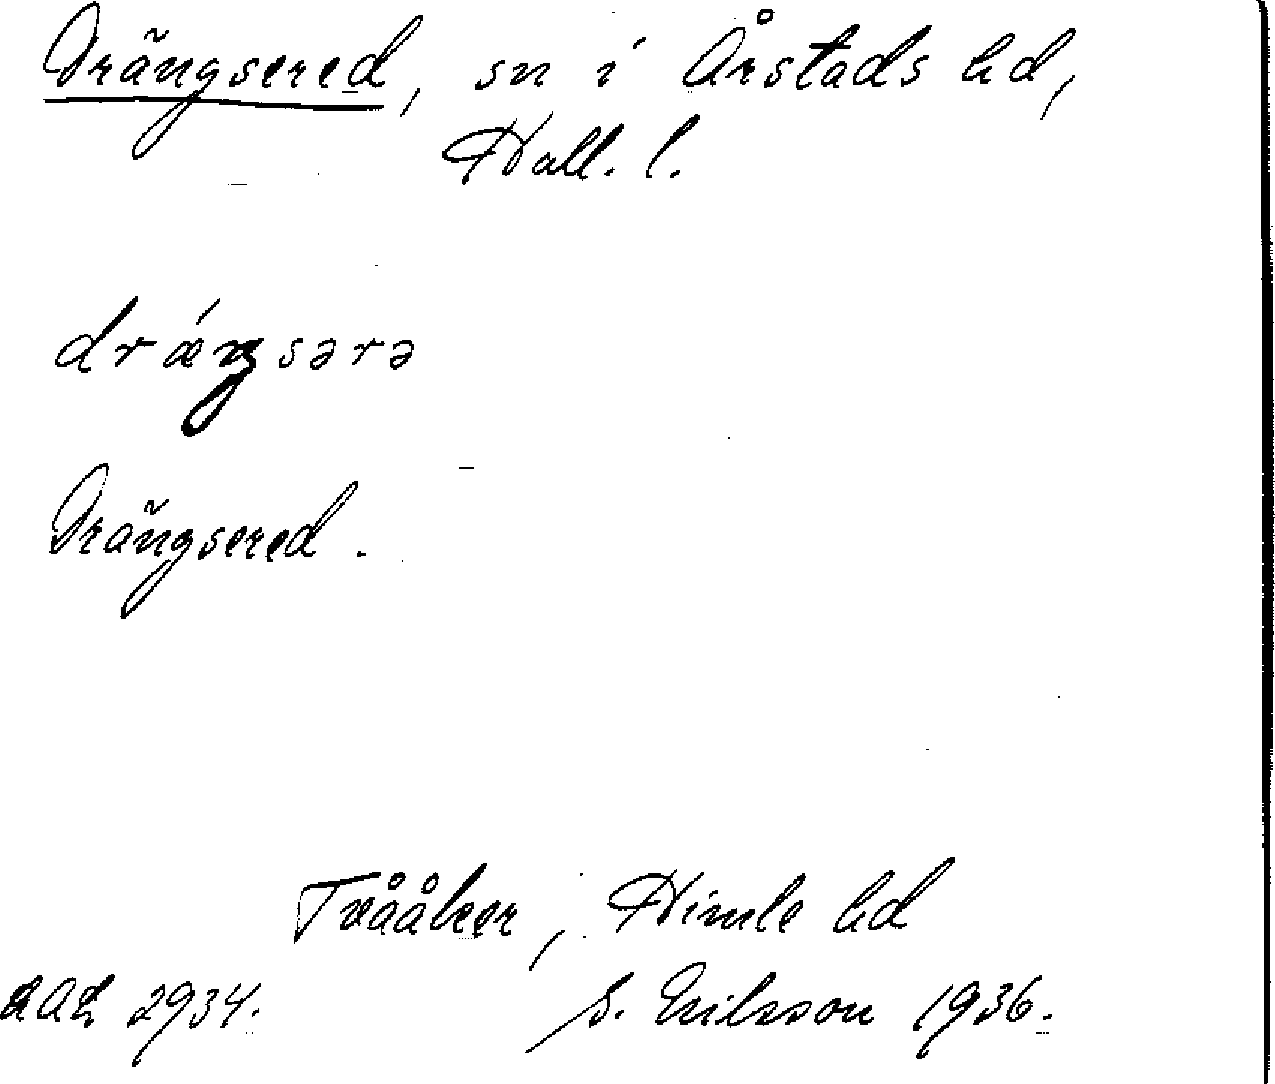 Drängsered, sn i Årstads hd,
Hall. l.
drǽŋsərə
Drängsered.
Tvååker, Himle hd
2934. S. Erilsson 1936.